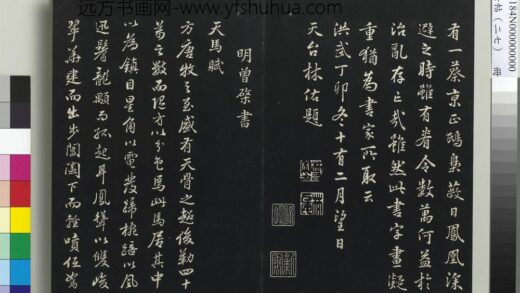 远方书画网-www.yfshuhua.com
有一蔡京正鸱枭蔽日凤凰深
避之时雖有眷令数萬何益於
治乱存亡哉雖然此書字畫凝
重猶為書家所取云
洪武丁卯冬十有二月望日
天台林佑題
明曾棨書
天馬賦
方唐牧之至盛有天骨之超俊勒四十
萬之數而随方以分色焉此馬居其中
以為鎮目星角以電發蹄椀踣以風
迅鬐龍顒而孤起耳鳳聳以雙峻
翠華建而出步閶闔下而輕噴低駑
184N000000000
帖(二七) 册